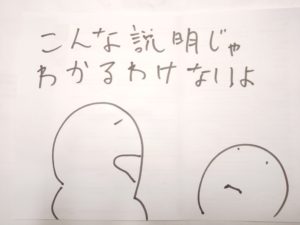 こんな説明じゃ
わかるわけないよ